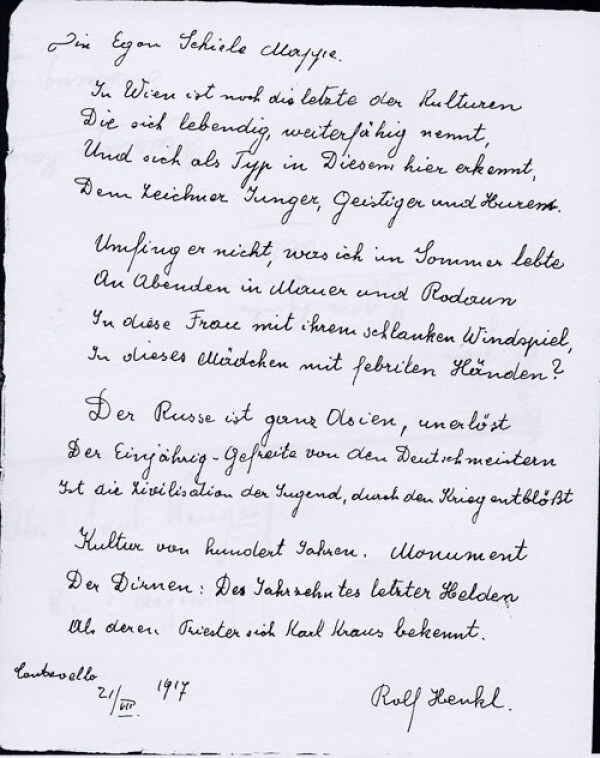 Die Egon Schiele Mappe.
In Wien ist noch die letzte der Kulturen
Die sich lebendig, weiterfähig nennt,
Und sich als Typ in Diesem hier erkennt,
Dem Zeichner Junger, Geistiger und Huren.
Umfing er nicht, was ich im Sommer lebte
An Abenden in Mauer und Rodaun
In diese Frau mit ihrem schlanken Windspiel,
In dieses Mädchen mit febrilen Händen?
Der Russe ist ganz Asien, unerlöst
Der Einjährig-Gefreite von den Deutschmeistern
Ist die Zivilisation der Jugend, durch den Krieg entblößt
Kultur von hundert Jahren. Monument
Der Dirnen: Des Jahrzehntes letzter Helden
Als deren Priester sich Karl Kraus bekennt.
21/VIII. 1917
Rolf Henkl.